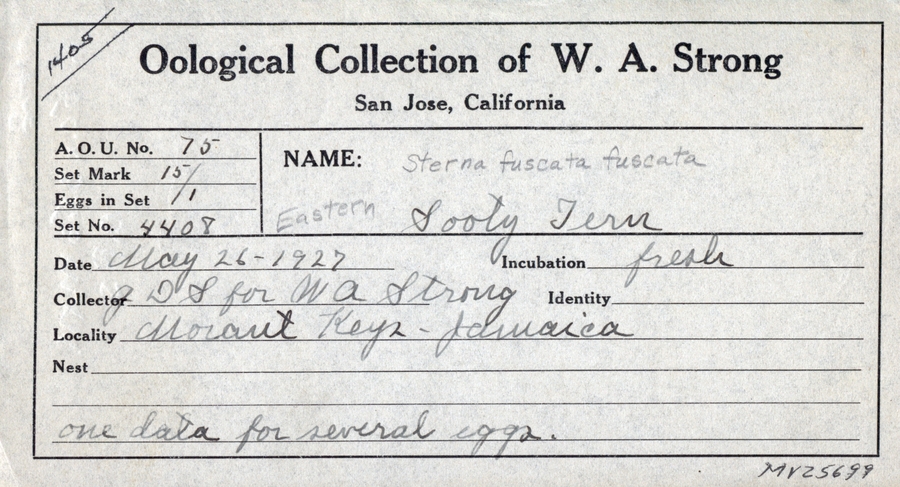 1405
Oological Collection of W. A. Strong
San Jose, California
A. O. U. No. 75
Set Mark 15/
Eggs in Set /1
Set No. 4408
NAME: Sterna fuscata fuscata
Eastern Sooty Tern
Date May 26-1927 Incubation fresh
Collector g D S for W A Strong Identity
Locality Morant Keys - Jamaica
Nest
one data for several eggs.
MV25699